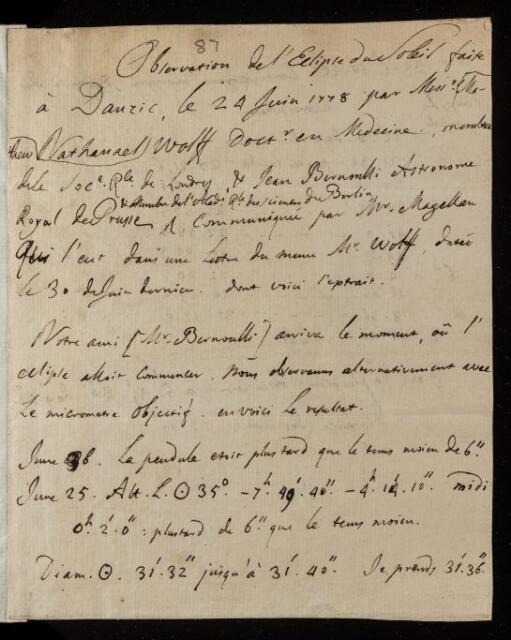 87
Observation de l'Eclipse du Soleil faite
à Danzic, le 24 Juin 1778 par Messrs (Ma-
thew Nathanael) Wolff Doctr en Medecine, membre
de le Soce Rle de Londres, & Jean Bernoulli Astronome
& Membre de l'Acade Rle des sciences du Berlin
Royal de Prusse, Communiquée par Mr. Magellan
Qui l'eut dans une Lettre du meme Mr. Wolff, datée
le 30 de Juin dernier. dont voici l'extrait.
Notre ami [Mr. Bernoulli] arriva le moment, où l'
eclipse alloit commencer. Nous observames alternativement avec
le micrometre objectif. en voici le resultat.
June 26. La pendule etoit plus tard que le tems moien de 6".
June 25. Alt. L. ☉ 35° - 7h 49' 40" - 4h 14' 10" midi
0h 2' 0" : plus tard de 6" que le tems moien.
Diam. ☉. 31' 32" jusqu'à 31' 40" Je prends 31' 36"